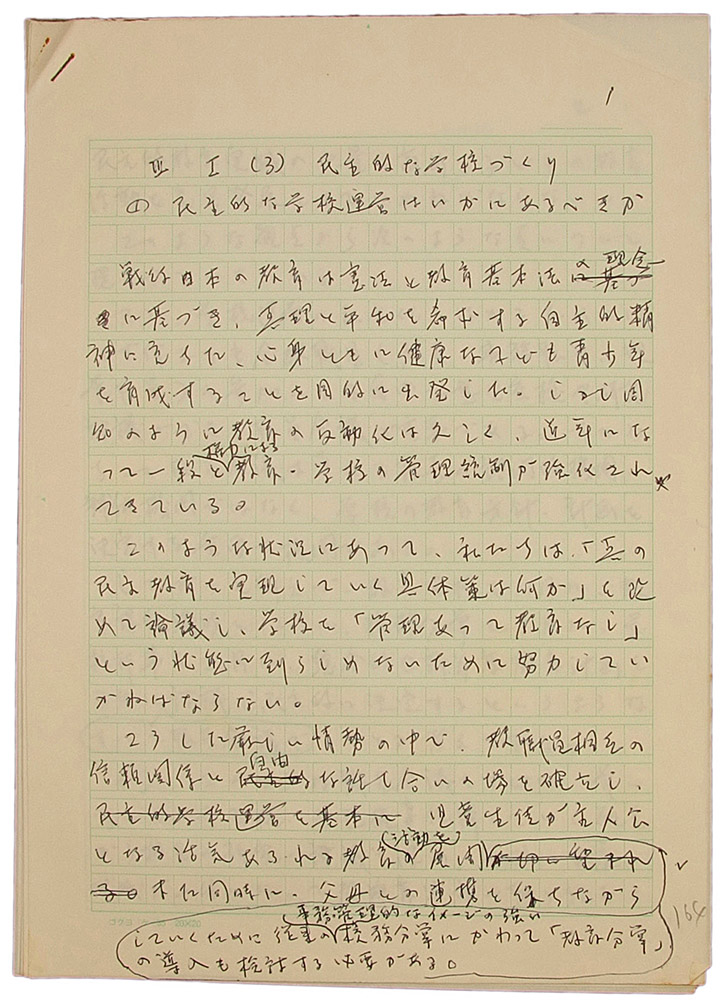 1
Ⅲ Ⅰ (3) 民主的な学校づくり
① 民主的な学校運営はいかにあるべきか
戦後日本の教育は憲法と教育基本法の理念
に基づき、真理と平和を希求する自主的精
神に充ちた、心身ともに健康な子ども青少年
を育成することを目的に出発した。しかし周
知のように教育の反動化は久しく、近年にな
って一段と権力による教育・学校の管理統制が強化され
てきている。
このような状況にあって、私たちは、「真の
民主教育を実現していく具体策は何か」を改
めて論議し、学校を「管理あって教育なし」
という状態に到らしめないために努力してい
かねばならない。
こうした厳しい情勢の中で、教職員相互の
信頼関係と民主的自由な話し合いの場を確立し、
民主的学校運営を基本に 児童生徒が主人公
となる活気あふれる教育の活動を展開
また同時に、父母との連携を保ちながら
していくために従来の事務管理的なイメージの強い校務分掌にかわって「教育分掌」
の導入も検討する必要がある。
164
コクヨ 20×20